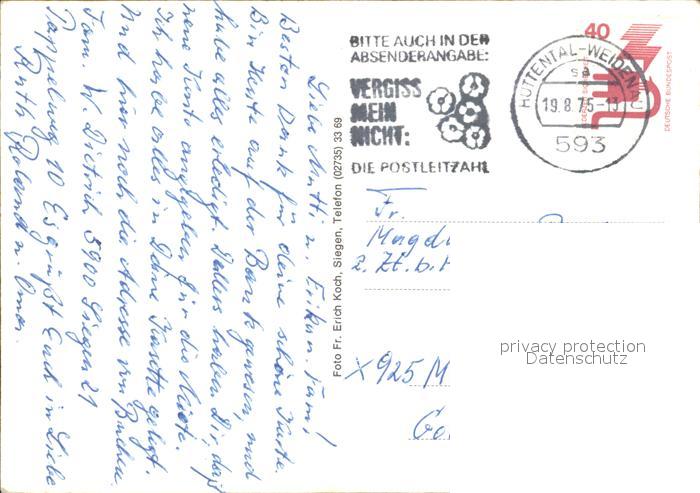 BITTE AUCH IN DER
ABSENDERANGABE:
VERGISS
MEIN
NICHT:
DIE POSTLEITZAHL
HÜTTENTAL-WEIDENAU
sa
19.8.75-13
593
40
DEUTSCHE BUNDESPOST
Liebe Mutti u. Erika u. Fam!
Besten Dank für deine schöne Karte.
Bin Heute auf der Bank gewesen, und
habe alles erledigt. Dellers haben Dir, daß
neue Konto angegeben für die Miete.
Ich habe alles in Deine Kasette gelegt.
Und hier noch die Adresse von
Fam. W. Dietrich 5900 Siegen 21
10 Es grüßt Euch in Liebe
Ruth Roland u. Omar.
Foto Fr. Erich Koch, Siegen, Telefon (02735) 33 69
Fr.
Magd
z. Zt. b. H
X 925 M
Go
privacy protection
Datenschutz